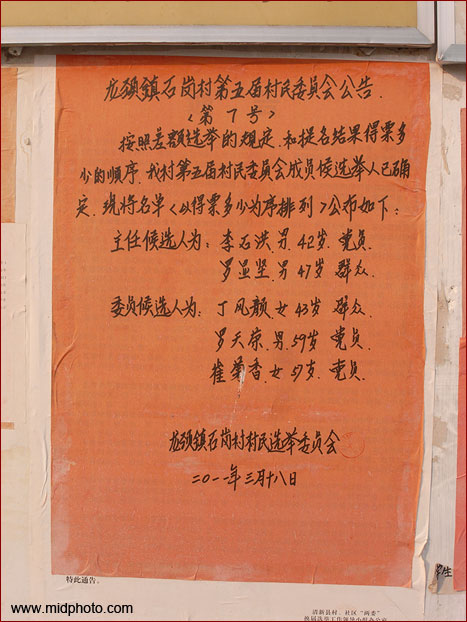 龙颈镇石岗村第五届村民委员会公告.
〈第 7 号〉
按照差额选举的规定.和提名结果得票多
少的顺序.我村第五届村民委员会成员候选举人已确
定.现将名单〈以得票多少为序排列〉公布如下:
主任候选人为:李石洪.男.42岁.党员.
罗显坚.男47岁.群众.
委员候选人为:丁凤颜.女43岁.群众.
罗天荣.男.59岁.党员.
崔菊香.女57岁.党员.
龙颈镇石岗村村民选举委员会
二〇一一年三月十八日
特此通告。
清新县村、社区"两委"
换届选举工作领导小组办公室
www.midphoto.com